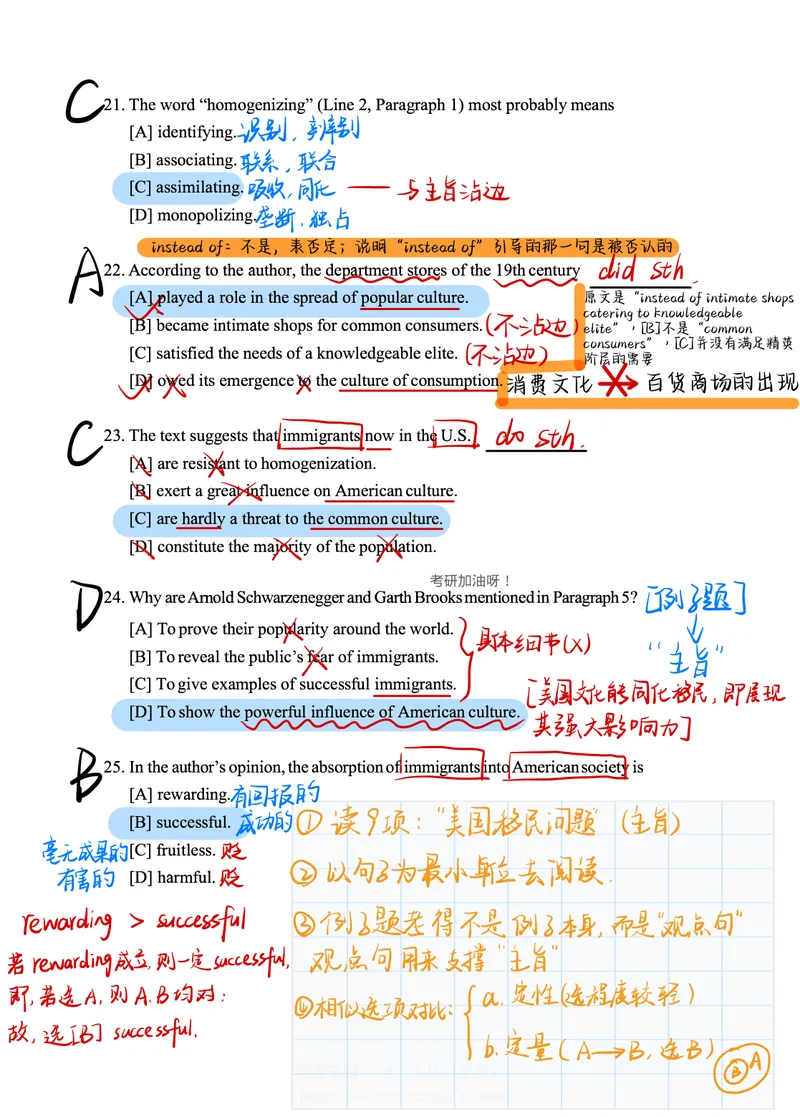 C 21. The word “homogenizing” (Line 2, Paragraph 1) most probably means
[A] identifying. 识别，辨别
[B] associating. 联系，联合
[C] assimilating. 吸收，同化 —— 与主旨沾边
[D] monopolizing. 垄断，独占
instead of：不是，表否定；说明“instead of”引导的那一句是被否认的
A 22. According to the author, the department stores of the 19th century did sth.
[A] played a role in the spread of popular culture.
[B] became intimate shops for common consumers. (不沾边)
[C] satisfied the needs of a knowledgeable elite. (不沾边)
[D] owed its emergence to the culture of consumption.
原文是“instead of intimate shops
catering to knowledgeable
elite”，[B]不是“common
consumers”，[C]并没有满足精英
阶层的需要
消费文化 → 百货商场的出现
C 23. The text suggests that immigrants now in the U.S. do sth.
[A] are resistant to homogenization.
[B] exert a great influence on American culture.
[C] are hardly a threat to the common culture.
[D] constitute the majority of the population.
考研加油呀！
D 24. Why are Arnold Schwarzenegger and Garth Brooks mentioned in Paragraph 5? [例子题]
[A] To prove their popularity around the world.
[B] To reveal the public’s fear of immigrants.
[C] To give examples of successful immigrants.
具体细节(X)
“主旨”
[D] To show the powerful influence of American culture.
[美国文化能同化移民，即展现
其强大影响力]
B 25. In the author’s opinion, the absorption of immigrants into American society is
[A] rewarding. 有回报的
[B] successful. 成功的
毫无成果的 [C] fruitless. 贬
有害的 [D] harmful. 贬
rewarding > successful
若rewarding成立，则一定successful，
即，若选A，则A.B均对；
故，选[B] successful.
① 读9项：“美国移民问题”(主旨)
② 以句子为最小单位去阅读.
③ 例子题考得不是例子本身，而是“观点句”
观点句用来支撑“主旨”
④相似选项对比：
a. 定性(选程度较轻)
b. 定量(A→B，选B)
B A